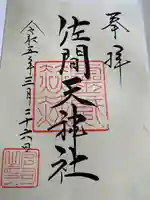 奉拝
佐間天神社
令和五年三月二十六日